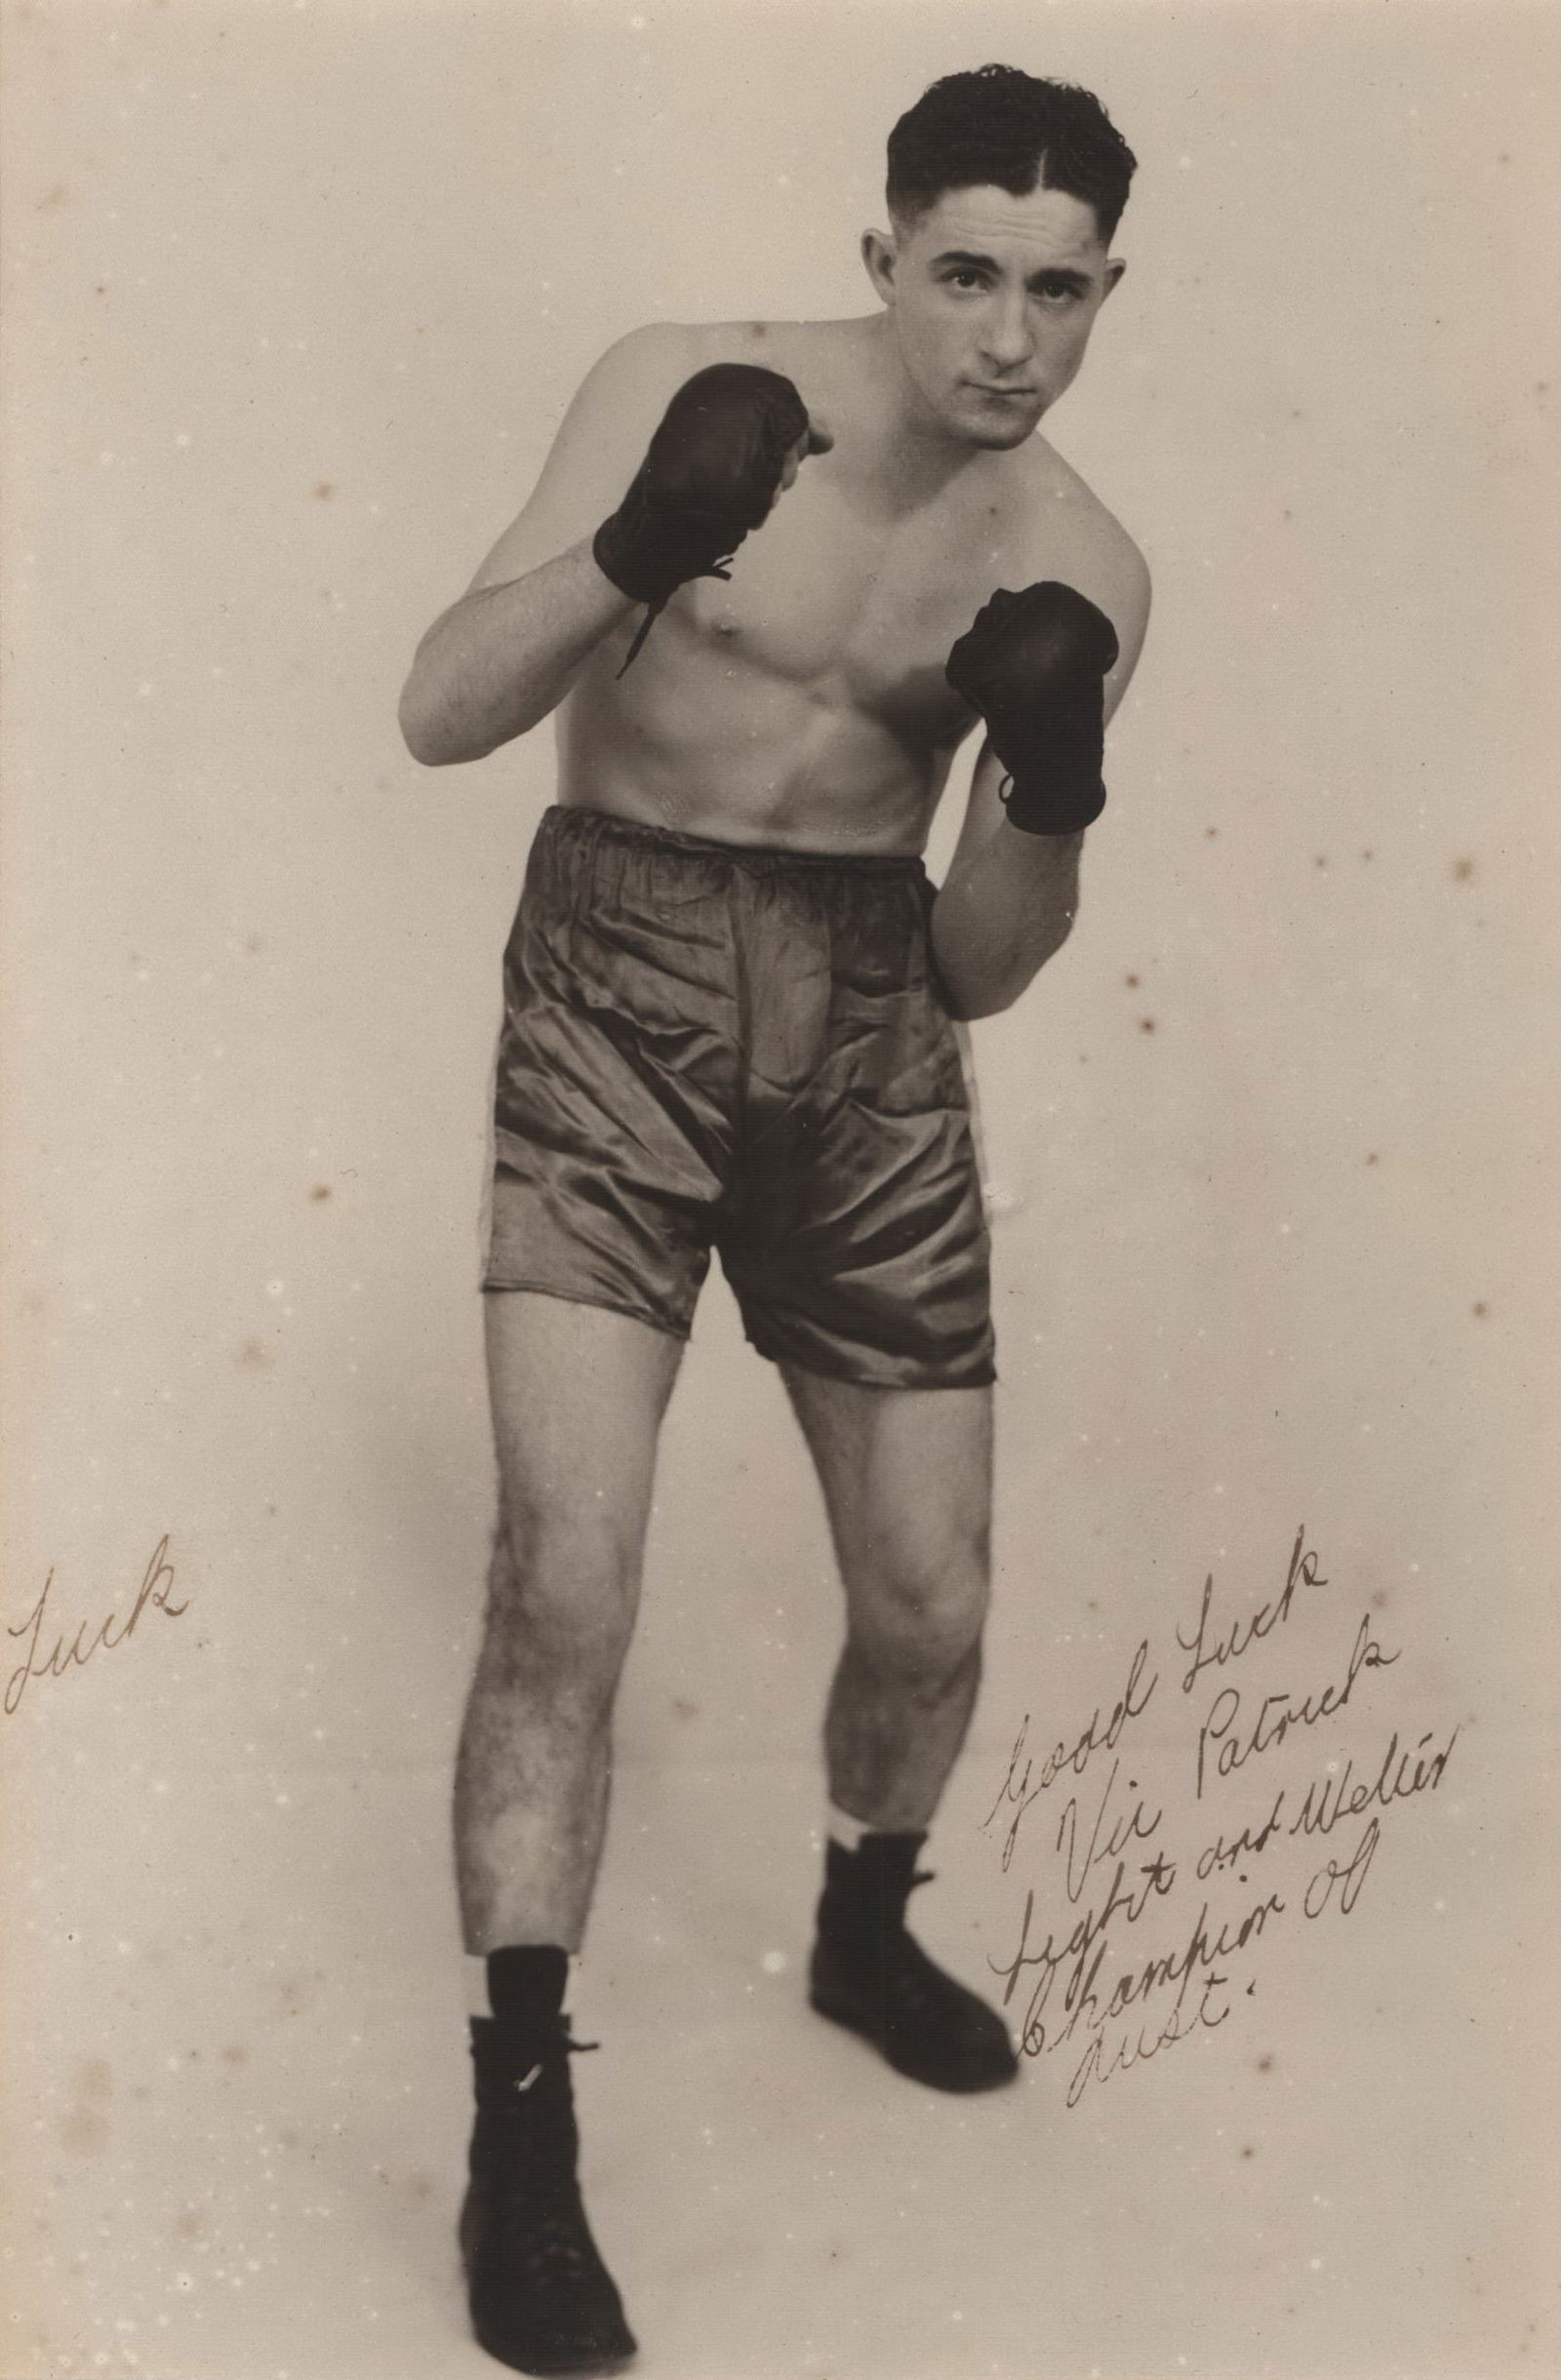 Luck
Good Luck
Vic Patrick
Light and Welter
Champion of
Aust.